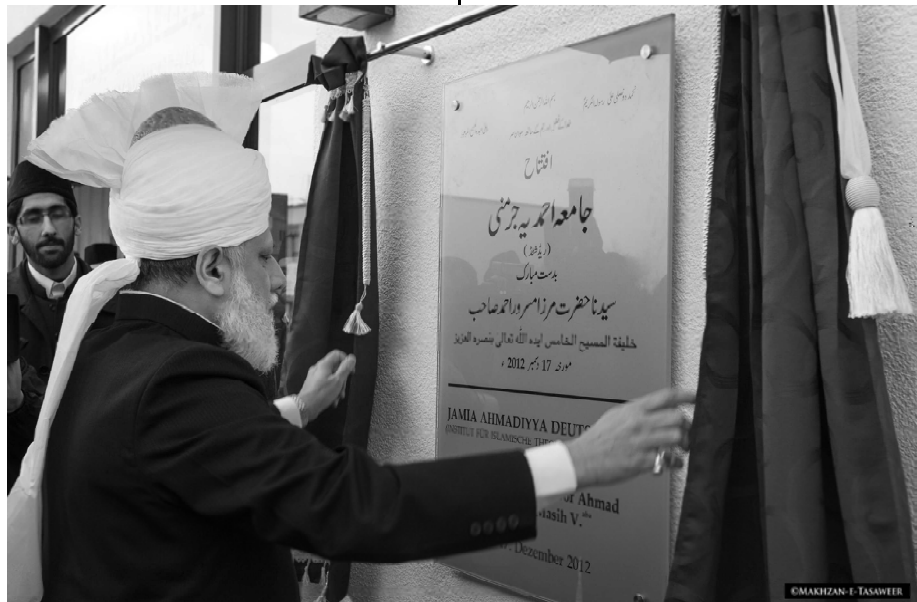 افتتاح
جامعہ احمدیہ جرمنی
(ریڈشٹڈ)
بدست مبارک
سیدنا حضرت مرزا مسرور احمد صاحب
خلیفة المسیح الخامس ایدہ اللہ تعالی بنصرہ العزیز
مورخہ 17 دسمبر 2012ء
JAMIA AHMADIYYA DEUTS
(INSTITUT FÜR ISLAMISCHE THEO
or Ahmad
Masih V.
Dezember 2012
©MAKHZAN-E-TASAWEER